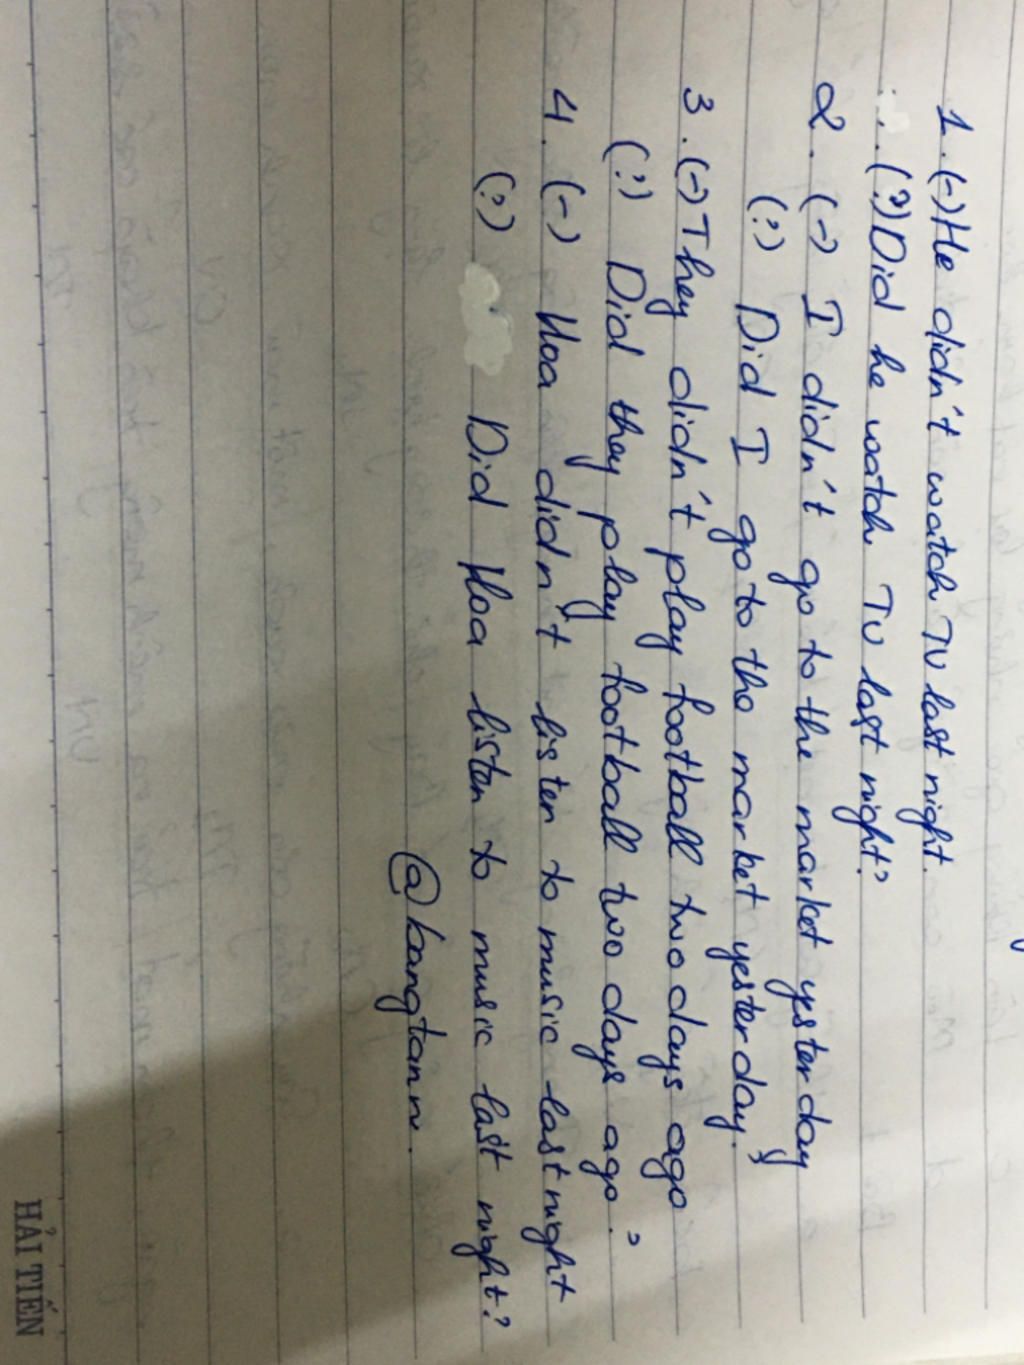 1. (-) He didn't watch TV last night.
(?) Did he watch TV last night?
2. (-) I didn't go to the market yesterday
(?) Did I go to the market yesterday?
3. (-) They didn't play football two days ago
(?) Did they play football two days ago?
4. (-) Hoa didn't listen to music last night
(?) Did Hoa listen to music last night?
@bangtann.
HẢI TIẾN